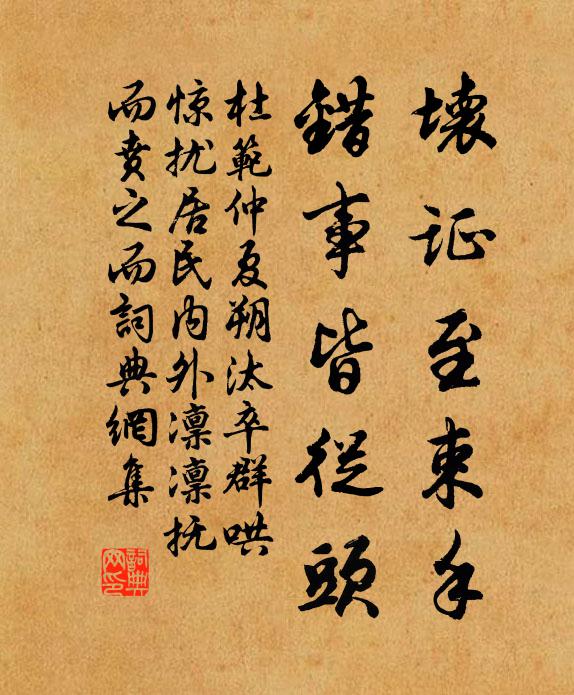 壞证至束手
錯事皆從頭
杜範仲夏朔汰卒群哄
惊扰居民内外凛凛抚
而賁之而詞典網集
詞典网印